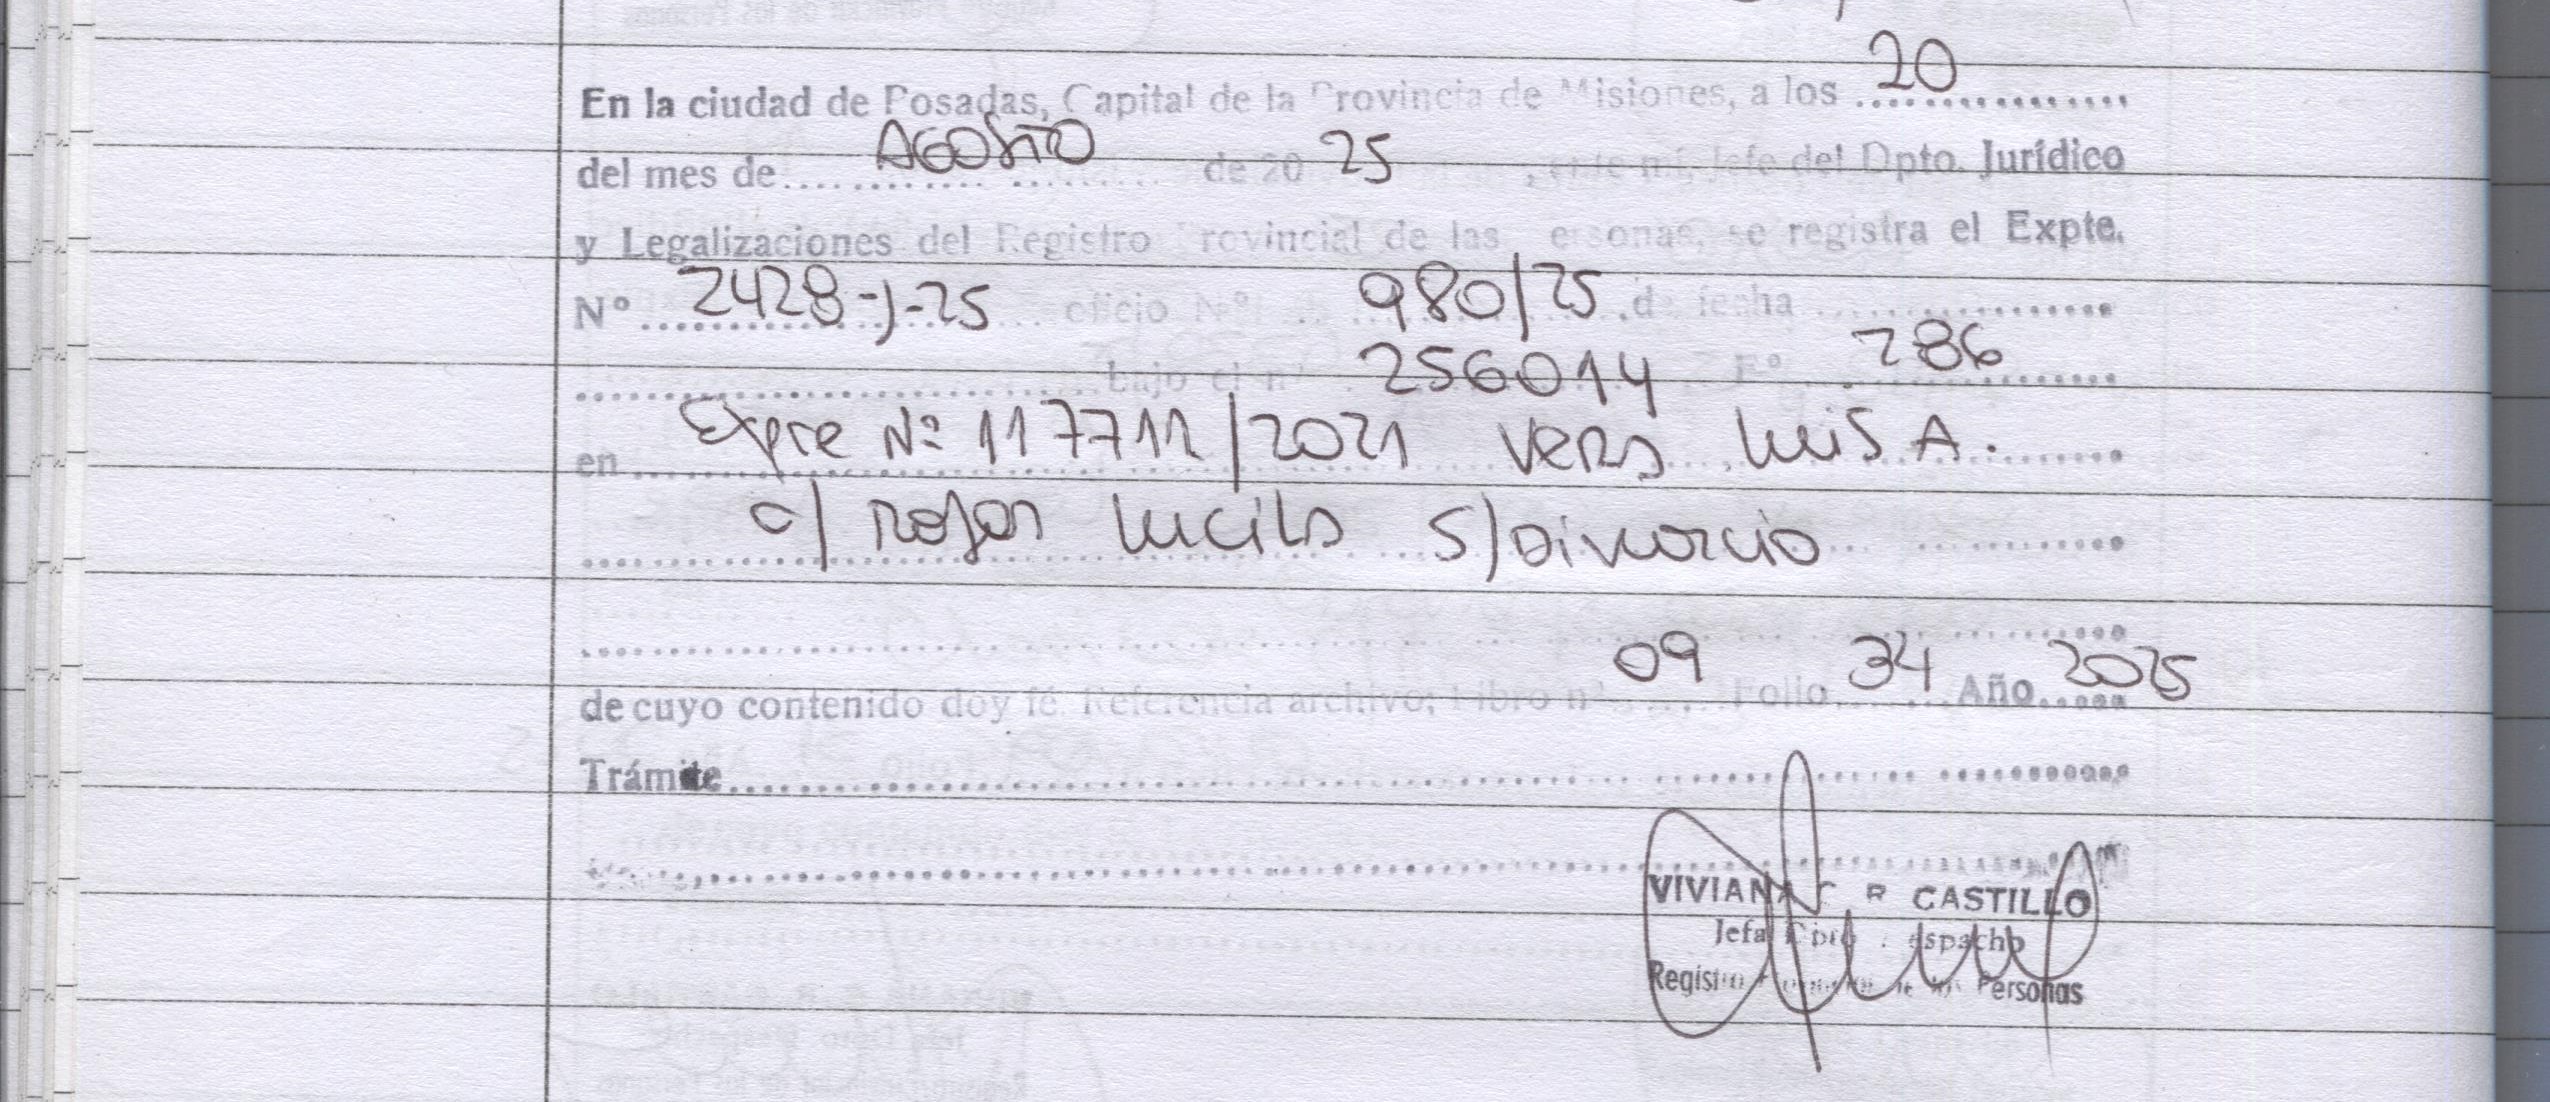 En la ciudad de Posadas, Capital de la Provincia de Misiones, a los 20
del mes de AGOSTO de 20 25, ante mí, Jefe del Dpto. Jurídico
y Legalizaciones del Registro Provincial de las Personas, se registra el Expte.
Nº 2428-J-25 oficio Nº 980/25 de fecha
bajo el nº 256014 Fº 286
en Expte Nº 117712/2021 Vera Luis A.
c/ Rojas Lucila s/ Divorcio
de cuyo contenido doy fé. Referencia archivo; Libro nº 09 Folio 34 Año 2025
Trámite
VIVIANA CASTILLO
Jefa Dpto. Despacho
Registro Provincial de las Personas